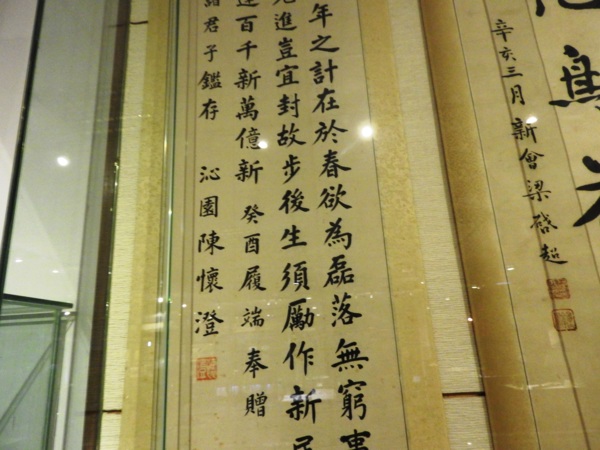 辛亥三月新會梁啓超
年之計在於春欲為磊落無窮事
先進豈宜封故步後生須勵作新民
百千新萬億新癸酉履端奉贈
諸君子鑑存沁園陳懷澄